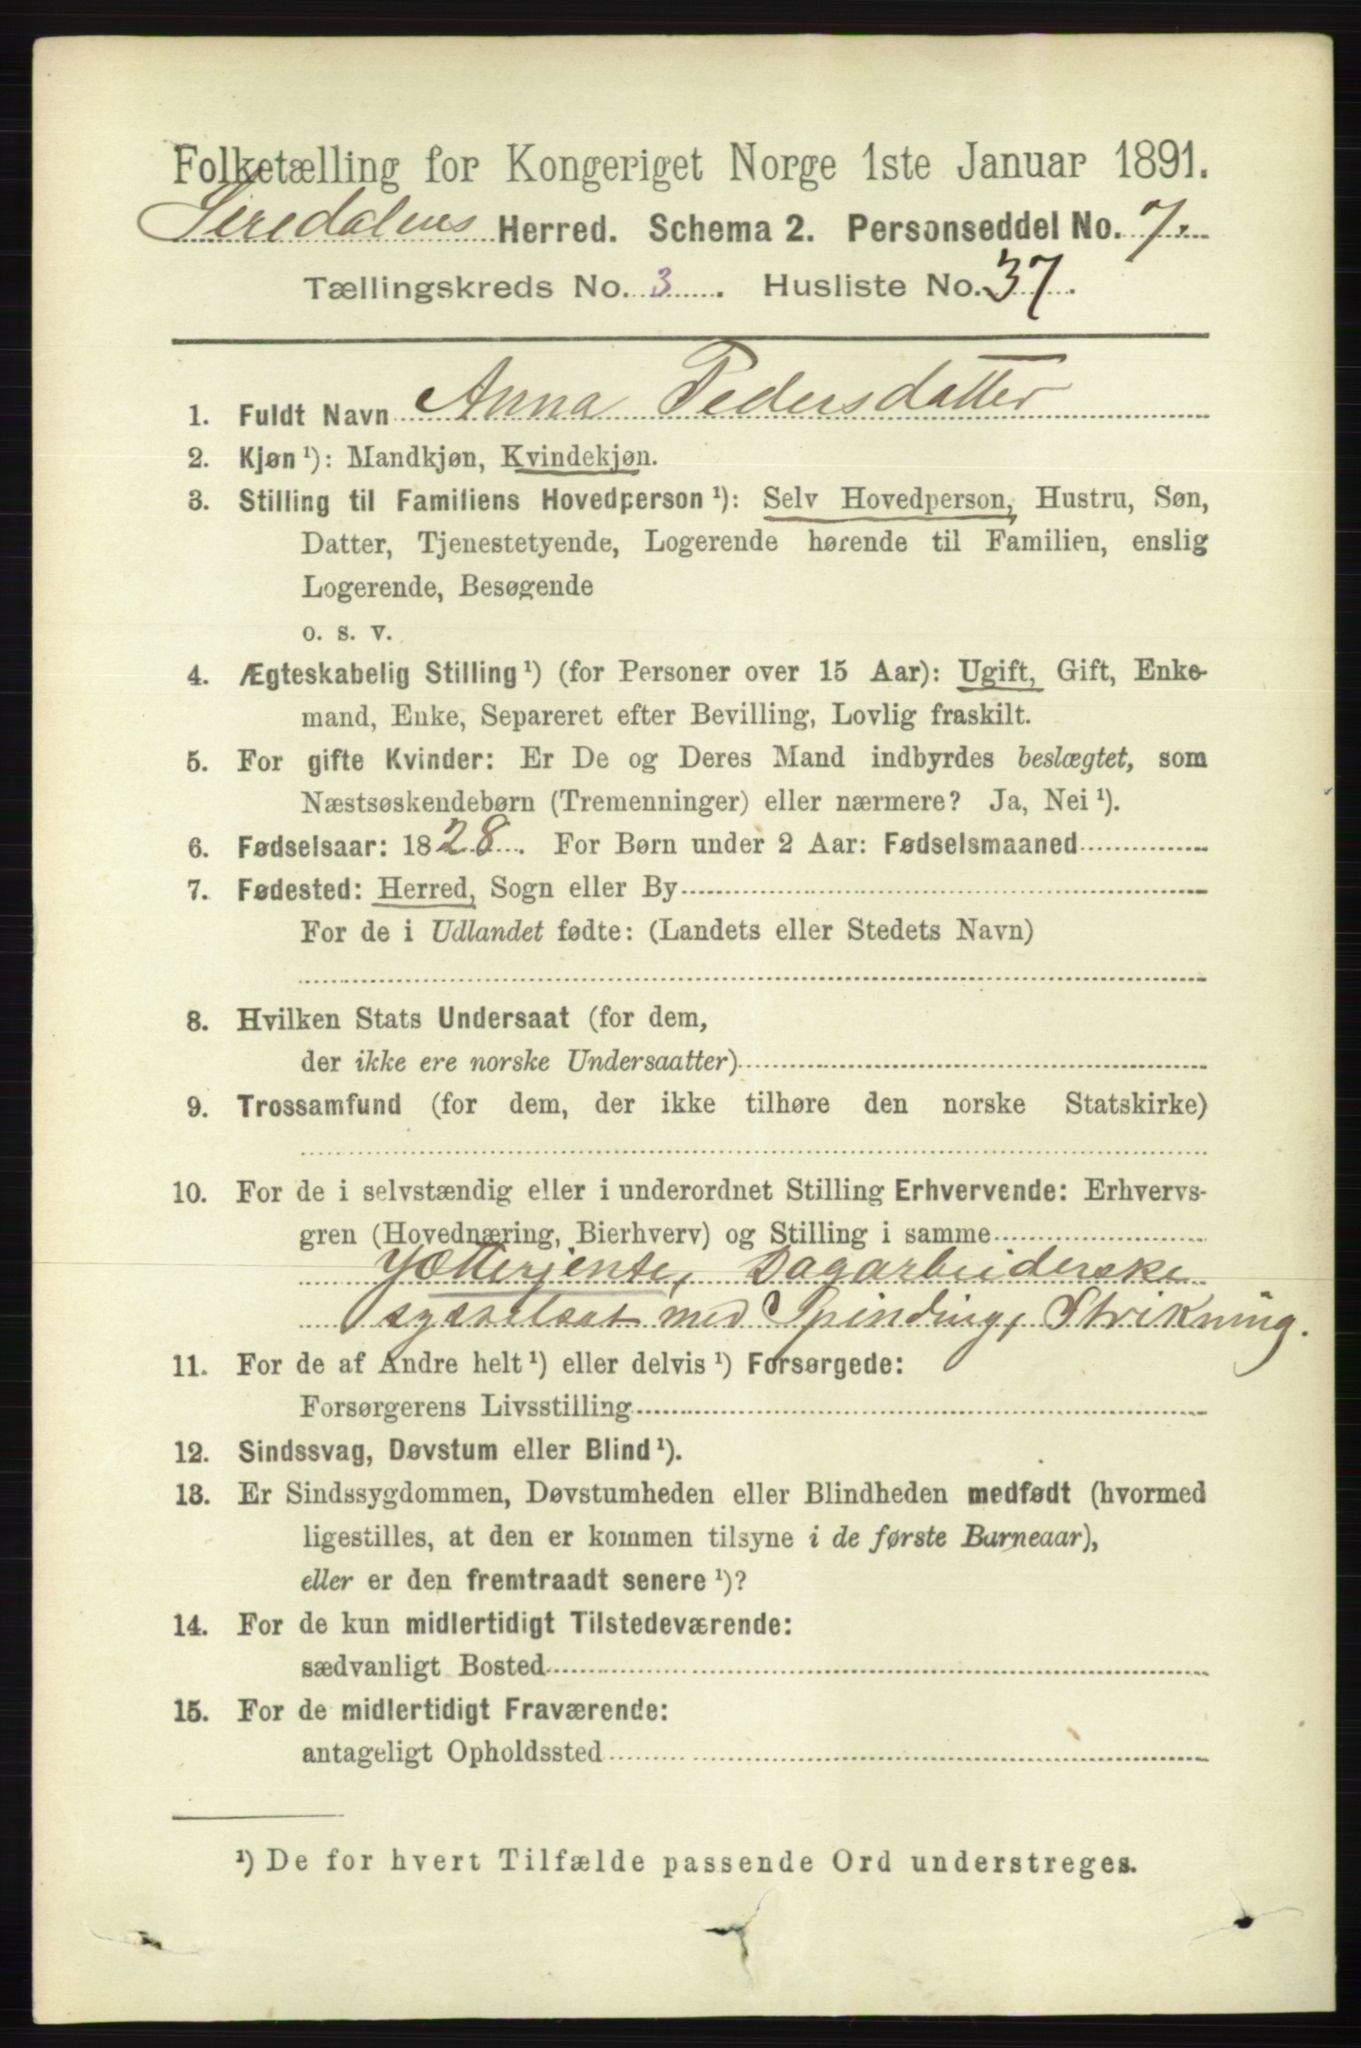 Folketælling for Kongeriget Norge 1ste Januar 1891.
Siredalens Herred. Schema 2. Personseddel No. 7.
Tællingskreds No. 3. Husliste No. 37.
1. Fuldt Navn Anna Pedersdatter
2. Kjøn ¹): Mandkjøn, Kvindekjøn.
3. Stilling til Familiens Hovedperson ¹): Selv Hovedperson, Hustru, Søn,
Datter, Tjenestetyende, Logerende hørende til Familien, enslig
Logerende, Besøgende
o. s. v.
4. Ægteskabelig Stilling ¹) (for Personer over 15 Aar): Ugift, Gift, Enke-
mand, Enke, Separeret efter Bevilling, Lovlig fraskilt.
5. For gifte Kvinder: Er De og Deres Mand indbyrdes beslægtet, som
Næstsøskendebørn (Tremenninger) eller nærmere? Ja, Nei ¹).
6. Fødselsaar: 1828. For Børn under 2 Aar: Fødselsmaaned
7. Fødested: Herred, Sogn eller By
For de i Udlandet fødte: (Landets eller Stedets Navn)
8. Hvilken Stats Undersaat (for dem,
der ikke ere norske Undersaatter)
9. Trossamfund (for dem, der ikke tilhøre den norske Statskirke)
10. For de i selvstændig eller i underordnet Stilling Erhvervende: Erhvervs-
gren (Hovednæring, Bierhverv) og Stilling i samme
Dagarbeiderske
sysselsat med Spinding, Strikning.
11. For de af Andre helt ¹) eller delvis ¹) Forsørgede:
Forsørgerens Livsstilling
12. Sindssvag, Døvstum eller Blind ¹).
13. Er Sindssygdommen, Døvstumheden eller Blindheden medfødt (hvormed
ligestilles, at den er kommen tilsyne i de første Barneaar),
eller er den fremtraadt senere ¹)?
14. For de kun midlertidigt Tilstedeværende:
sædvanligt Bosted
15. For de midlertidigt Fraværende:
antageligt Opholdssted
¹) De for hvert Tilfælde passende Ord understreges.